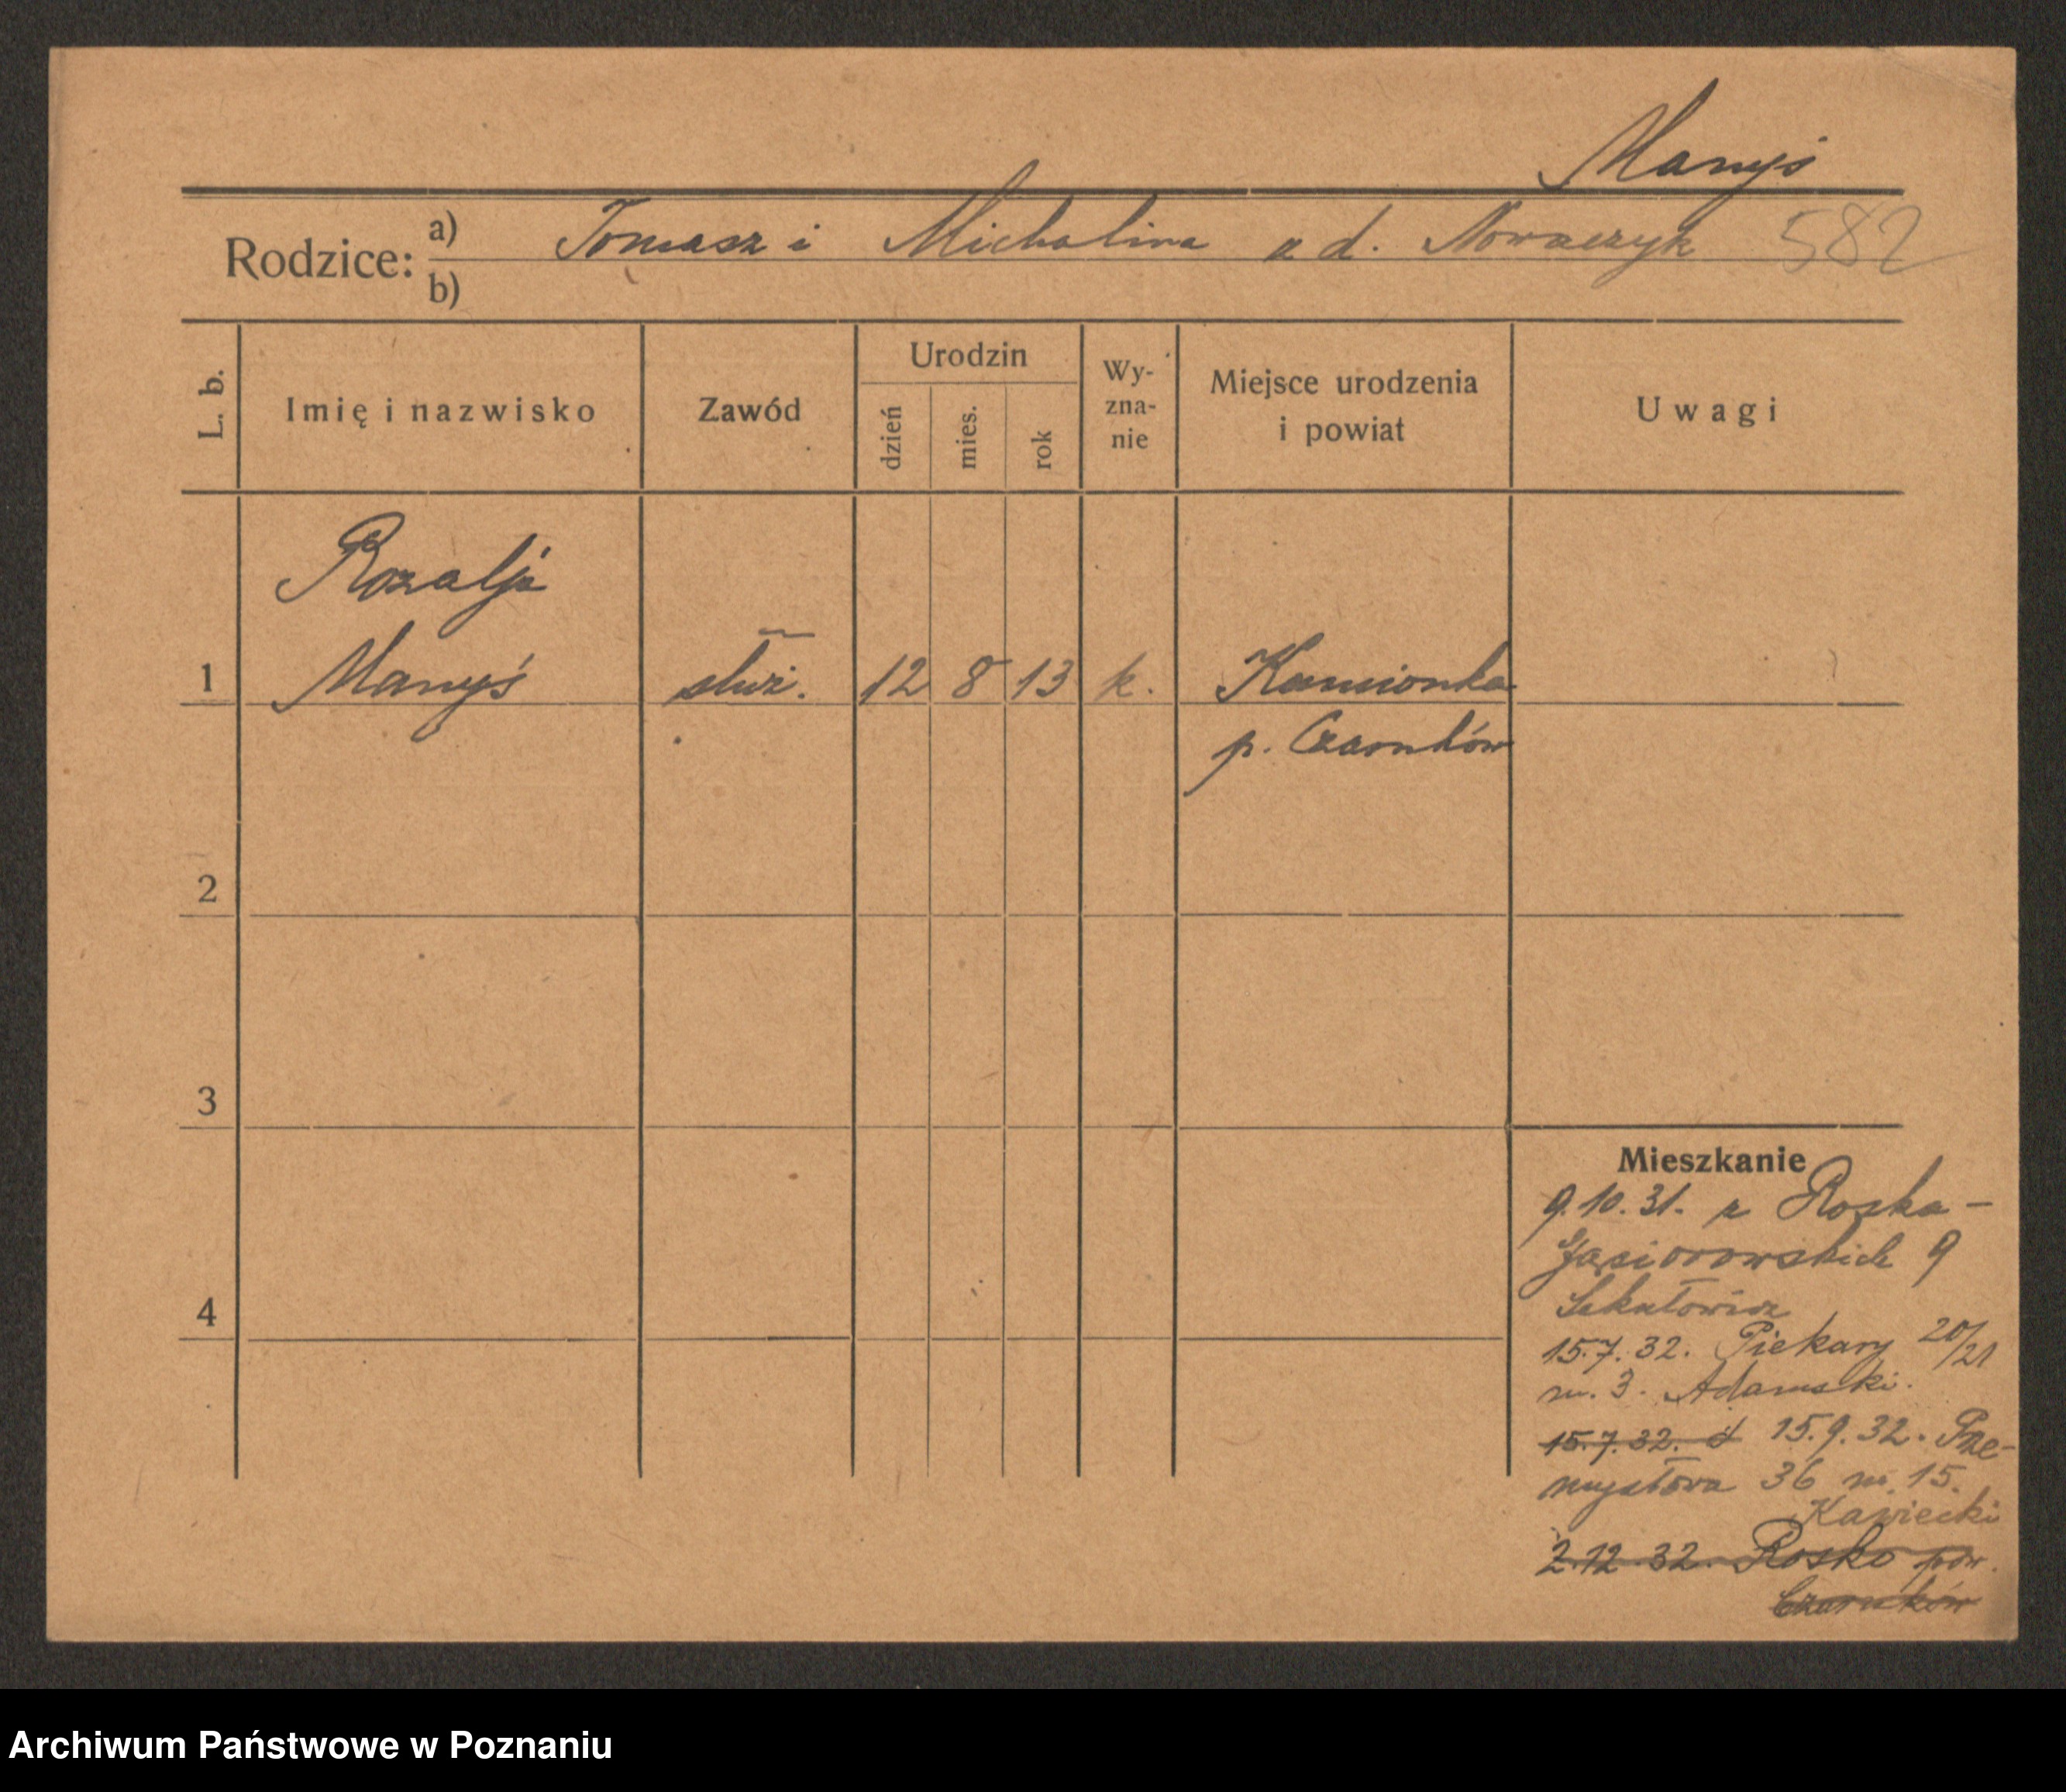 Manyś
Rodzice: a) Tomasz i Michalina z d. Nowaczyk 582
b)
L. b. Imię i nazwisko Zawód Urodzin dzień mies. rok Wy-zna-nie Miejsce urodzenia i powiat Uwagi
Rozalja
1 Manyś służ. 12 8 13 k. Kamionka
p. Czarnków
2
3
Mieszkanie
9.10.31. z Roska -
Gąsiorowskich 9
4
15.7.32. Piekary 20/21
m. 3. Adamski.
15.7.32. 15.9.32. Prze-
mysłowa 36 m. 15.
Kawiecki
2.12.32. Rosko pow.
Czarnków
Archiwum Państwowe w Poznaniu